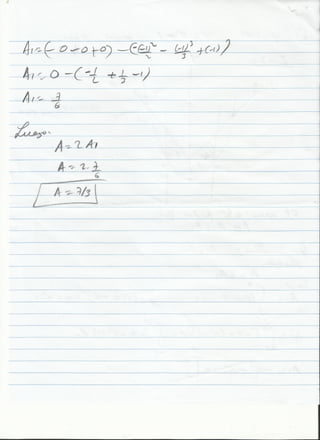 A₁=(-0-0+0)-(-(-1)²/2 - (-1)³/3 +(-1))
A₁=0-(-1/2 +1/3 -1)
A₁= 7/6
Luego.
A=2.A₁
A=2.7/6
A=7/3